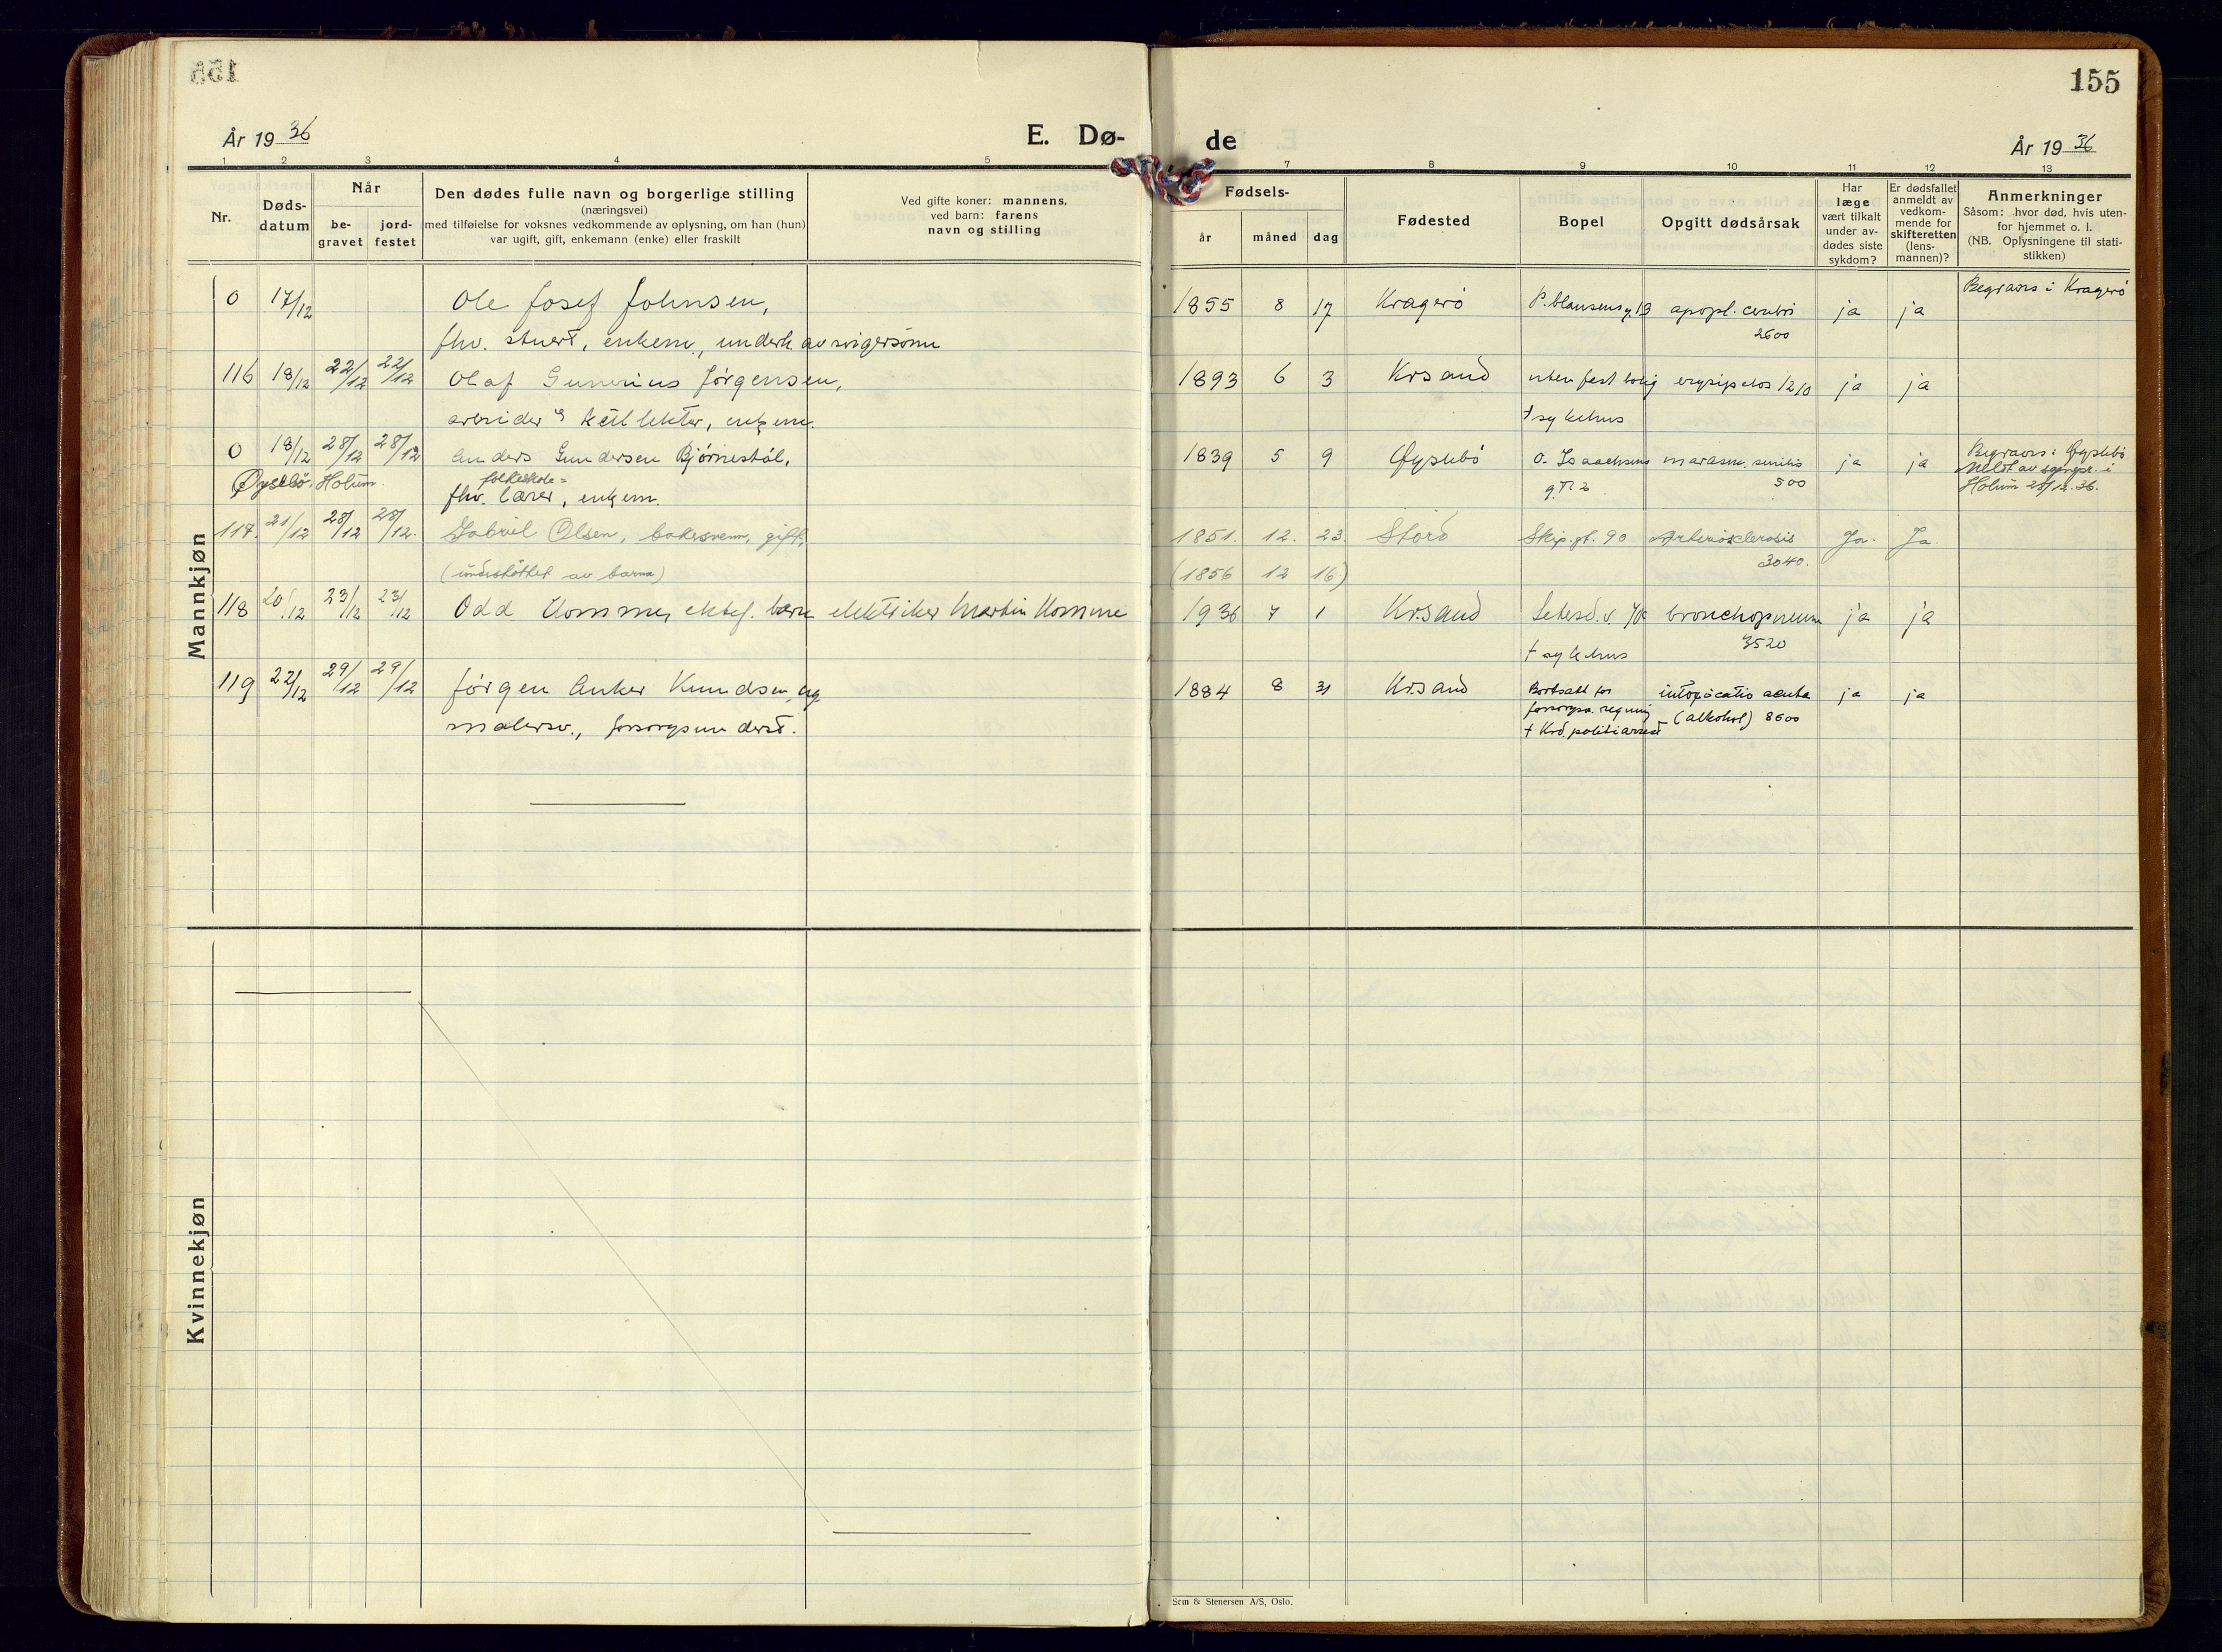 155
År 19 36
E. Dø-
de
År 19 36
155
1 2 3 4 5
7 8 9 10 11 12 13
Nr.
Døds-
datum
Når
be-
gravet
jord-
festet
Den dødes fulle navn og borgerlige stilling
(næringsvei)
med tilføielse for voksnes vedkommende av oplysning, om han (hun)
var ugift, gift, enkemann (enke) eller fraskilt
Ved gifte koner: mannens,
ved barn: farens
navn og stilling
Fødsels-
år
måned
dag
Fødested
Bopel
Opgitt dødsårsak
Har
læge
vært tilkalt
under av-
dødes siste
sykdom?
Er dødsfallet
anmeldt av
vedkom-
mende for
skifteretten
(lens-
mannen)?
Anmerkninger
Såsom: hvor død, hvis uten-
for hjemmet o. l.
(NB. Oplysningene til stati-
stikken)
Mannkjøn
0 17/12 Ole Josef Johnsen, 1855 8 17 Kragerø P. Clausensg. 13 apopl. cerebri ja ja Begraves i Kragerø
fhv. stuert, enkem., underh. av svigersønn 2600
116 18/12 22/12 22/12 Olaf Gunerius Jørgensen, 1893 6 3 Krsand uten fast bolig erysipelas 1210 ja ja
arbeider, enkem. † sykehus
0 18/12 28/12 28/12 Anders Gundersen Bjørnestøl, 1839 5 9 Øyslebø O. Isaachsens marasm. senilis ja ja Begraves i Øyslebø
Øyslebø. Holum. folkeskole= g. 500 Meldt av sognepr. i
fhv. lærer, enkem. Holum 28/12.36.
117. 21/12 28/12 28/12. Gabriel Olsen, bakersvenn, gift, 1851. 12. 23. Stord Skip.gt. 90 Arteriosklerosis Ja. Ja.
(understøttet av barna) (1856 12 16) 3040.
118 20/12 23/12 23/12 Odd Homme, ektef. barn elektriker Martin Homme 1936 7 1 Krsand Setesd. v. bronchopneum ja ja
† sykehus 3520
119 22/12 29/12 29/12 Jørgen Anker Knudsen, ug. 1884 8 31 Krsand Bortsatt for intoxicatio acuta ja ja
malersv., forsorgsunderst. forsorgsv. regning (alkohol) 8600
† Krd. politiarrest
Kvinnekjøn
Sem & Stenersen A/S, Oslo.